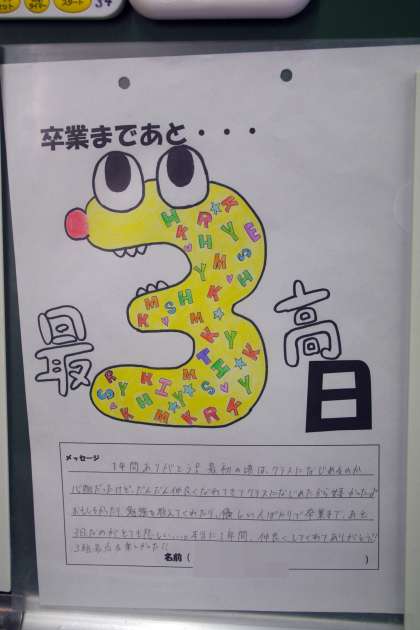 スタート
卒業まであと・・・
3
最高
日
メッセージ
1年間ありがとう!最初の頃は、クラスになじめるのか
心配だったけど、だんだん仲良くなれてきてクラスになじめたから嬉しかったよ
おもしろかったり、勉強を教えてくれたり、優しい人ばかりで卒業まで、あと
3日なのがとても悲しい...。本当に1年間、仲良くしてくれてありがとう!!
名前( )